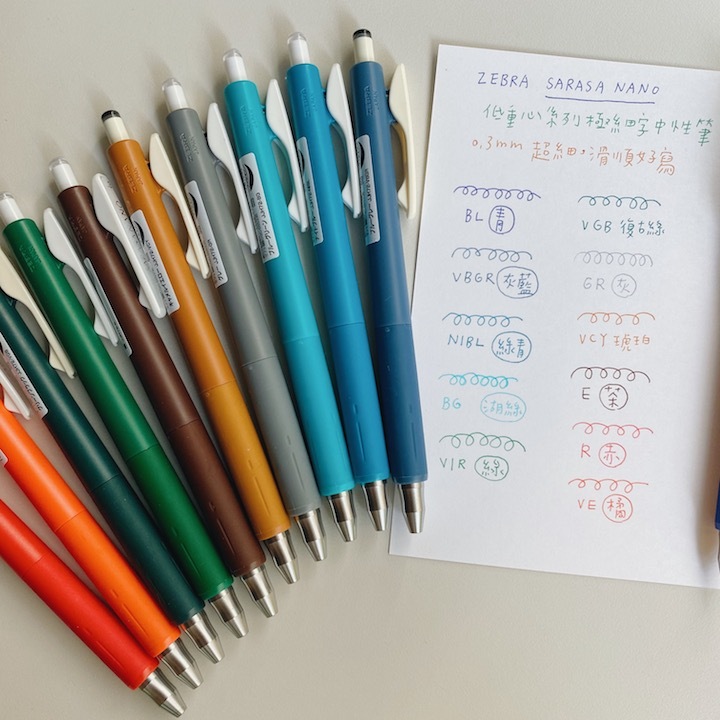 ZEBRA SARASA NANO
低重心系列極細字中性筆
0.3mm 超細,滑順好寫
BL 青
VGB 復古綠
VBGR 灰藍
GR 灰
NIBL 綠青
VCY 琥珀
BG 湖綠
E 茶
VIR 綠
R 赤
VE 橘